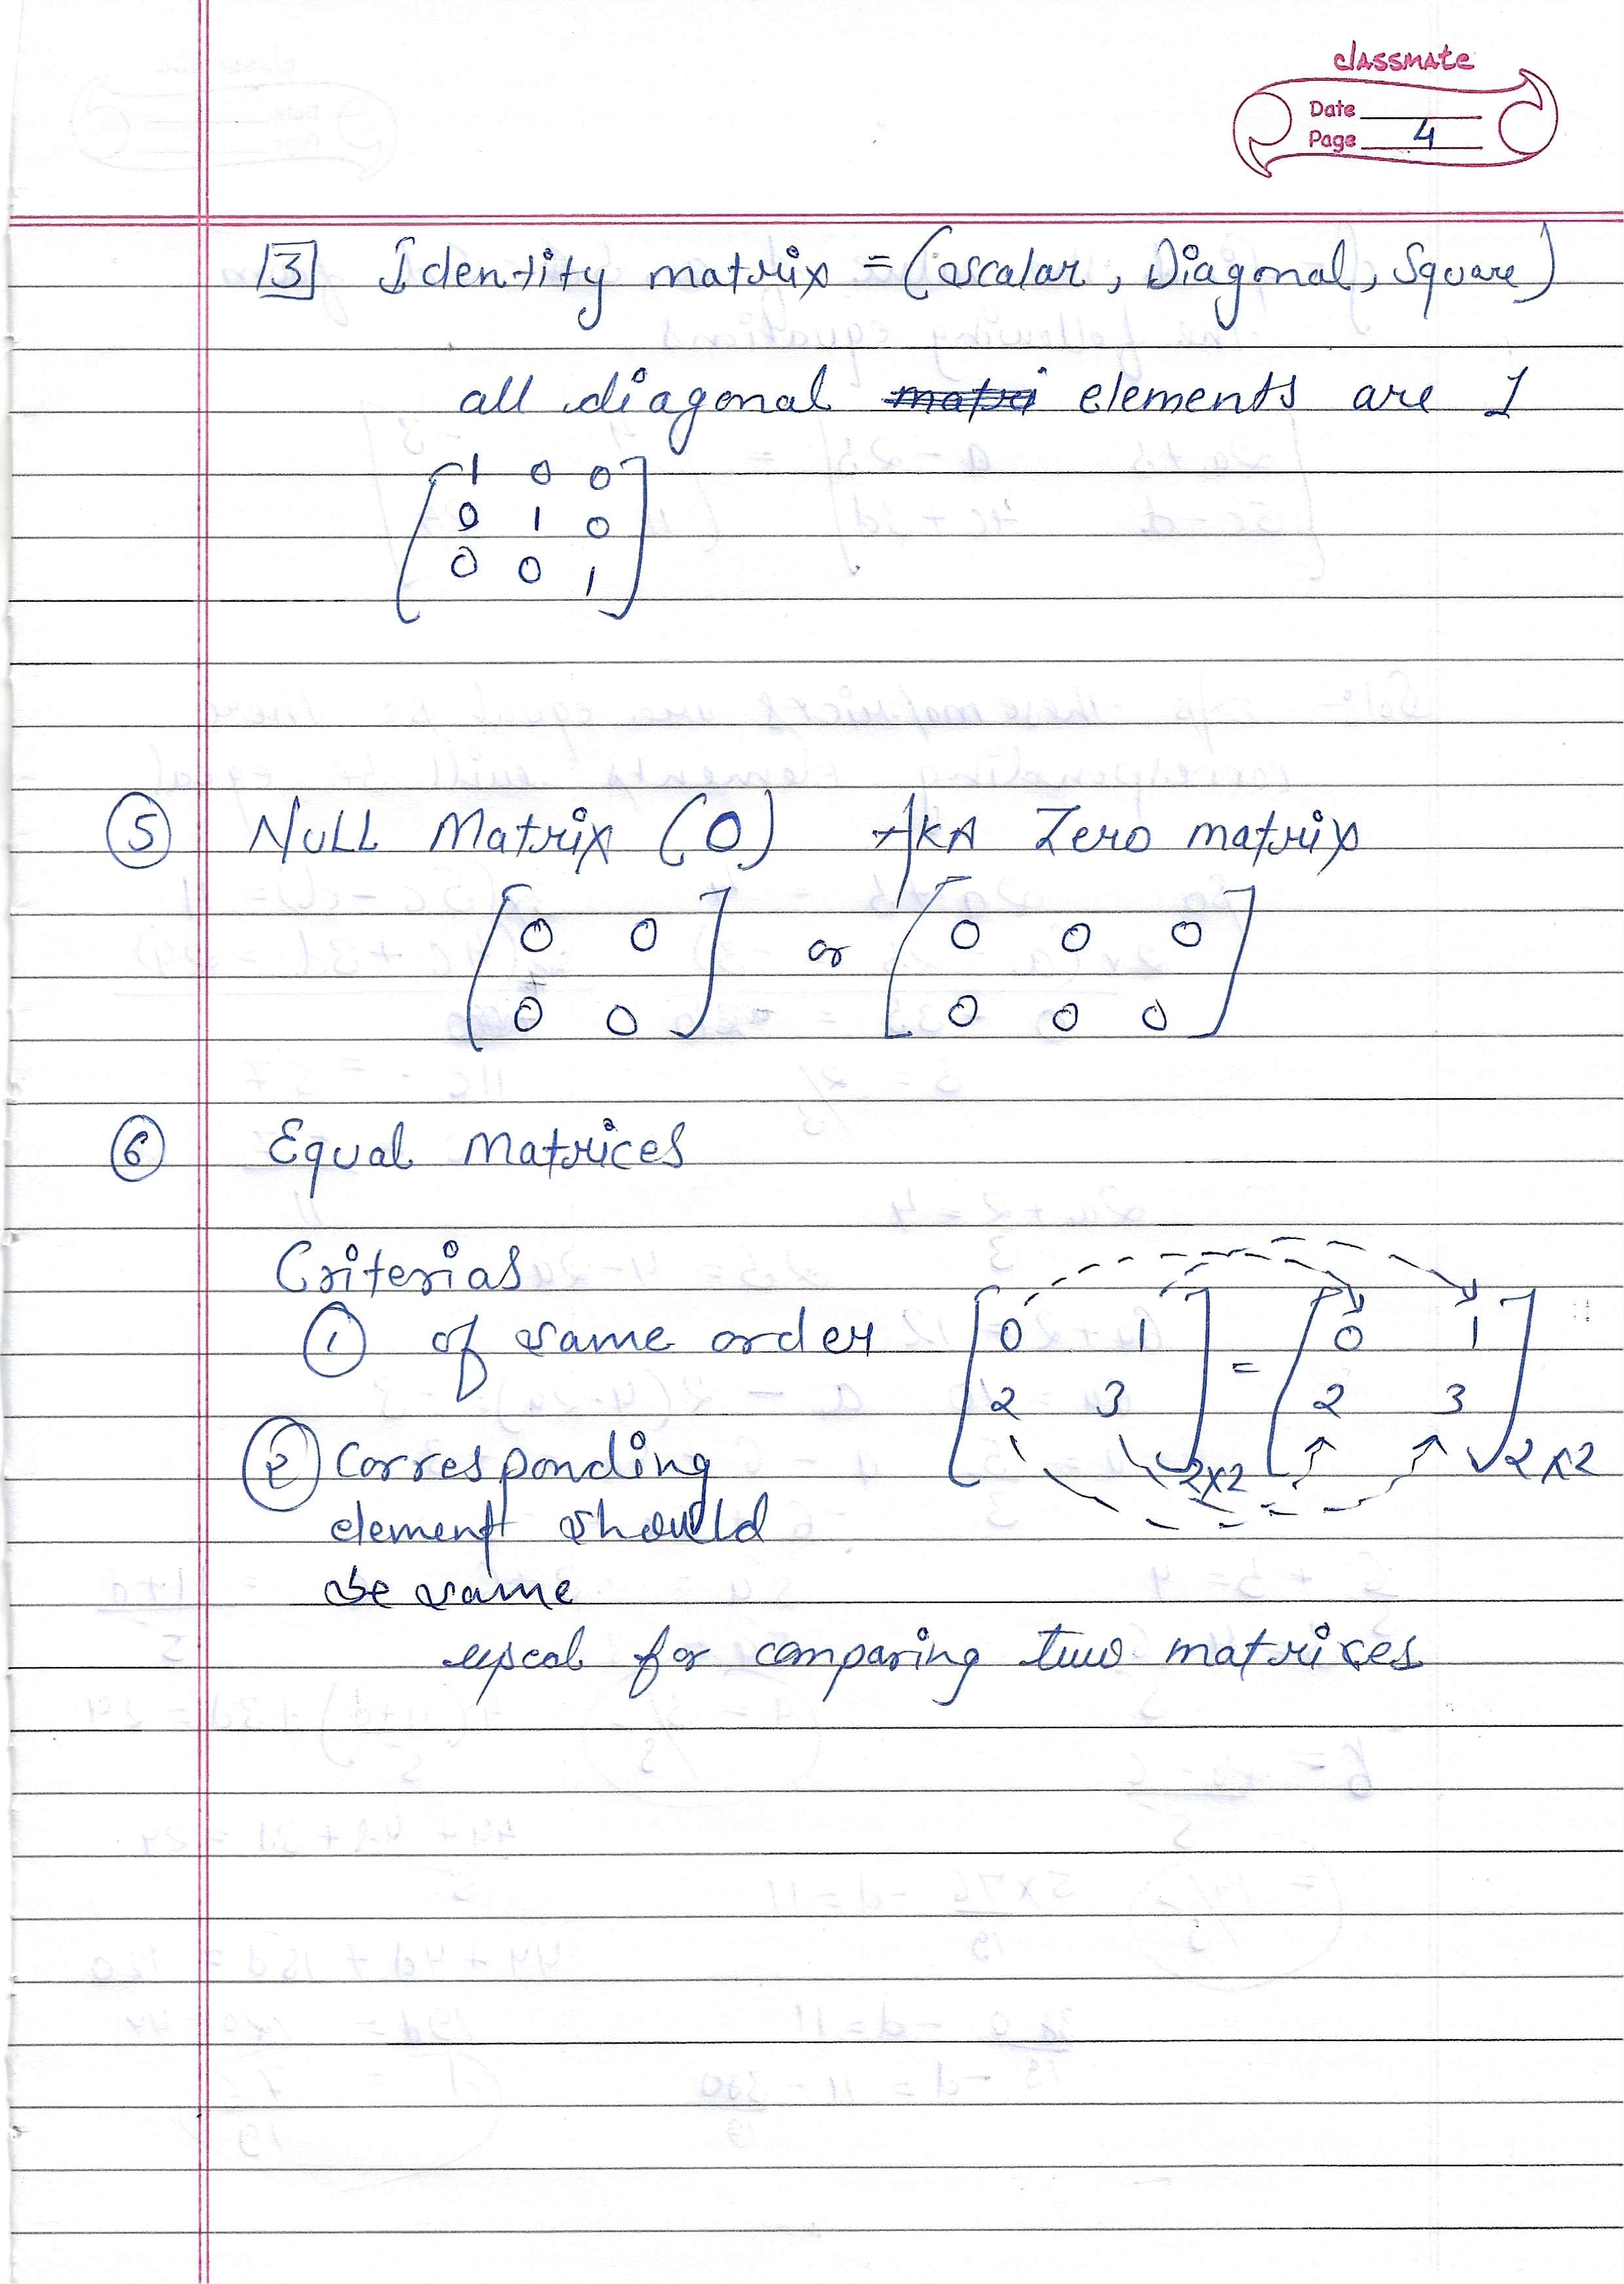 classmate
Date
Page 4
[3] Identity matrix = (scalar, Diagonal, Square)
all diagonal elements are 1
1 0 0
0 1 0
0 0 1
(5) NULL Matrix (0) AKA Zero matrix
[0 0] or [0 0 0]
[0 0] [0 0 0]
(6) Equal Matrices
Criterias
(1) of same order
[0 1] = [0 1]
[2 3] 2x2 [2 3] 2x2
(2) Corresponding
element should
be same
for comparing two matrices